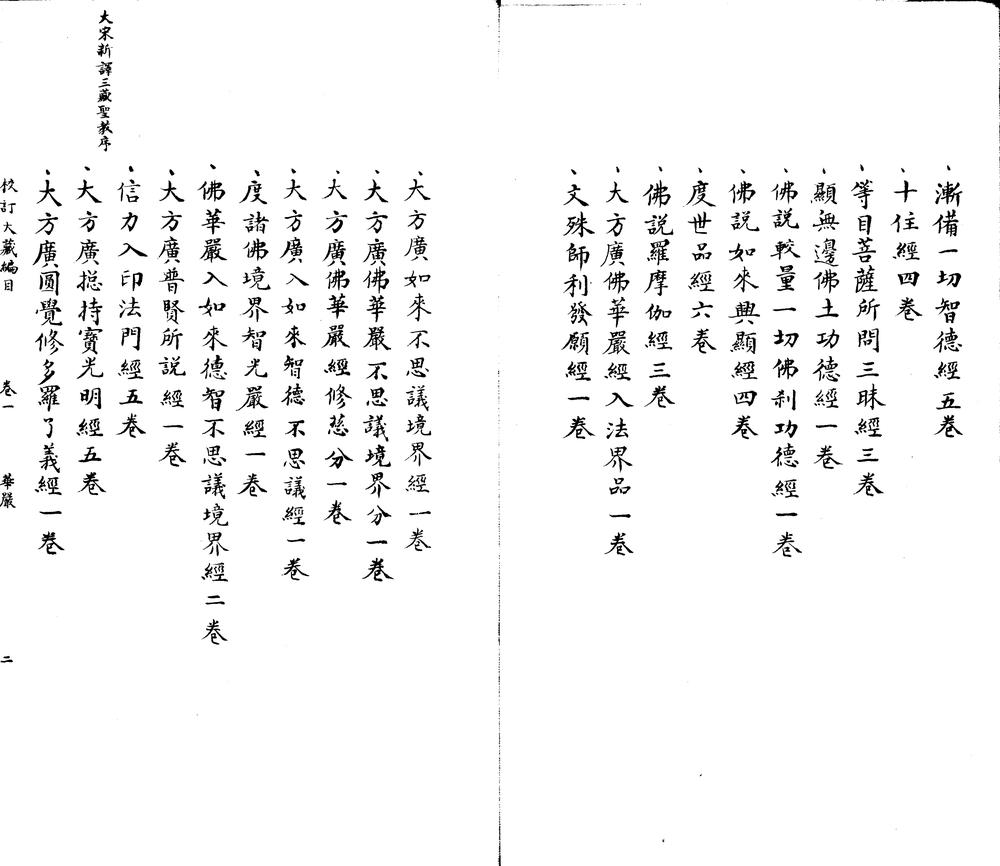 漸備一切智德經五卷
十住經四卷
等目菩薩所問三昧經三卷
顯無邊佛土功德經一卷
佛說較量一切佛刹功德經一卷
佛說如來興顯經四卷
度世品經六卷
佛說羅摩伽經三卷
大方廣佛華嚴經入法界品一卷
文殊師利發願經一卷
大方廣如來不思議境界經一卷
大方廣佛華嚴不思議境界分一卷
大方廣佛華嚴經修慈分一卷
大方廣入如來智德不思議經一卷
度諸佛境界智光嚴經一卷
佛華嚴入如來德智不思議境界經二卷
大方廣普賢所說經一卷
信力入印法門經五卷
大宋新譯三藏聖教序
大方廣捴持寶光明經五卷
大方廣圓覺修多羅了義經一卷
校訂大藏編目 卷一 華嚴 二